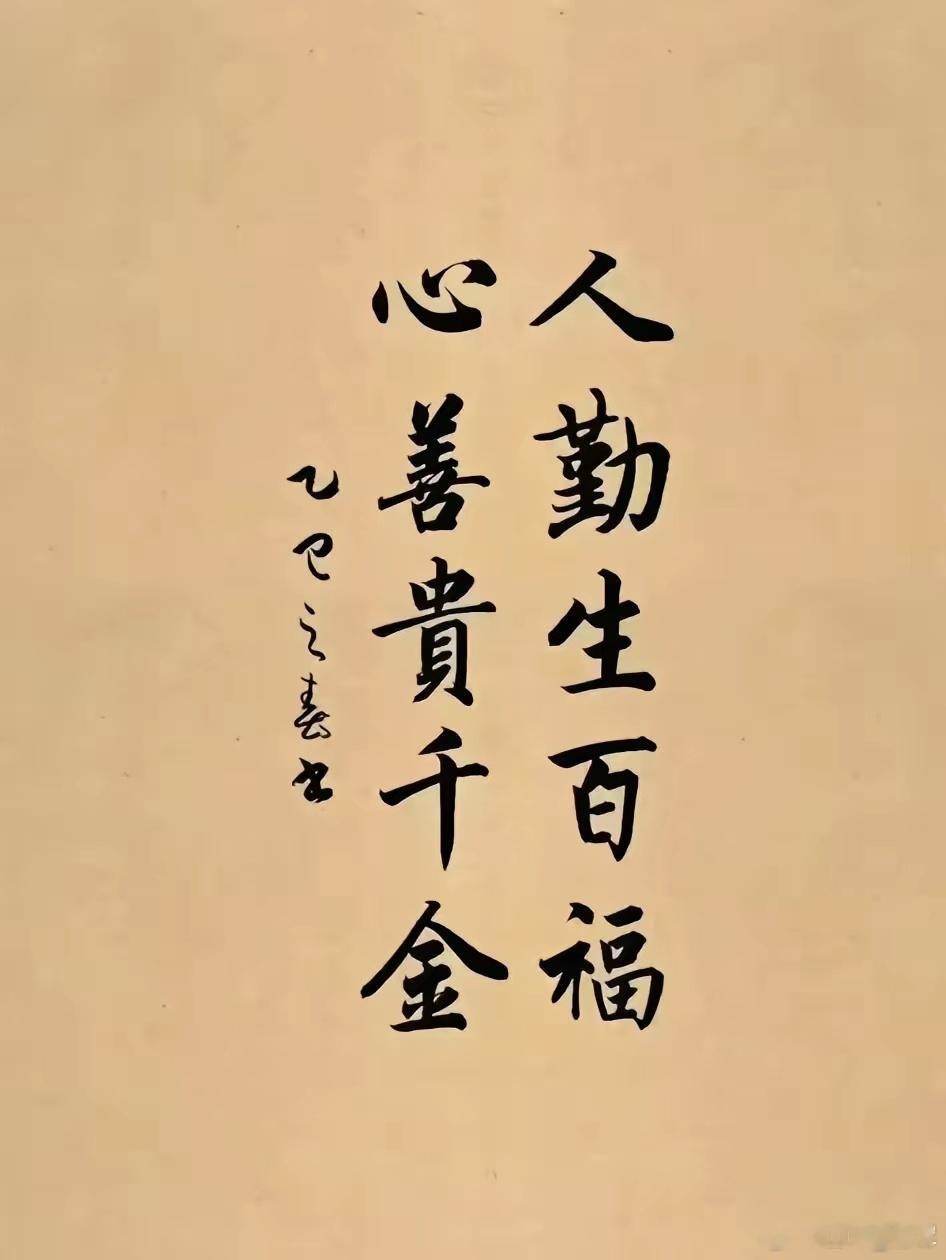 人勤生百福
心善貴千金
乙巳之春书